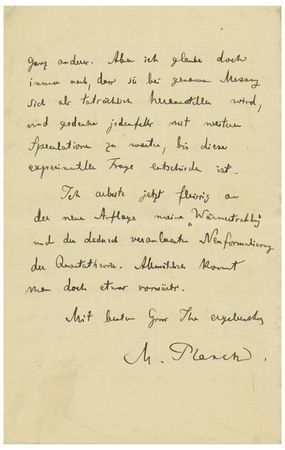 ganz anders. Aber ich glaube doch
immer noch, dass sie bei genauer Messung
sich als tatsächlich herausstellen wird,
und gedenke jedenfalls mit weiteren
Speculationen zu warten, bis diese
experimentelle Frage entschieden ist.
Ich arbeite jetzt fleissig an
der neuen Auflage meiner „Wärmestrahlung“
und die dadurch veranlasste Neuformulierung
der Quantentheorie. Allmählich kommt
man doch etwas vorwärts.
Mit bestem Gruss Ihr ergebenster
M. Planck.